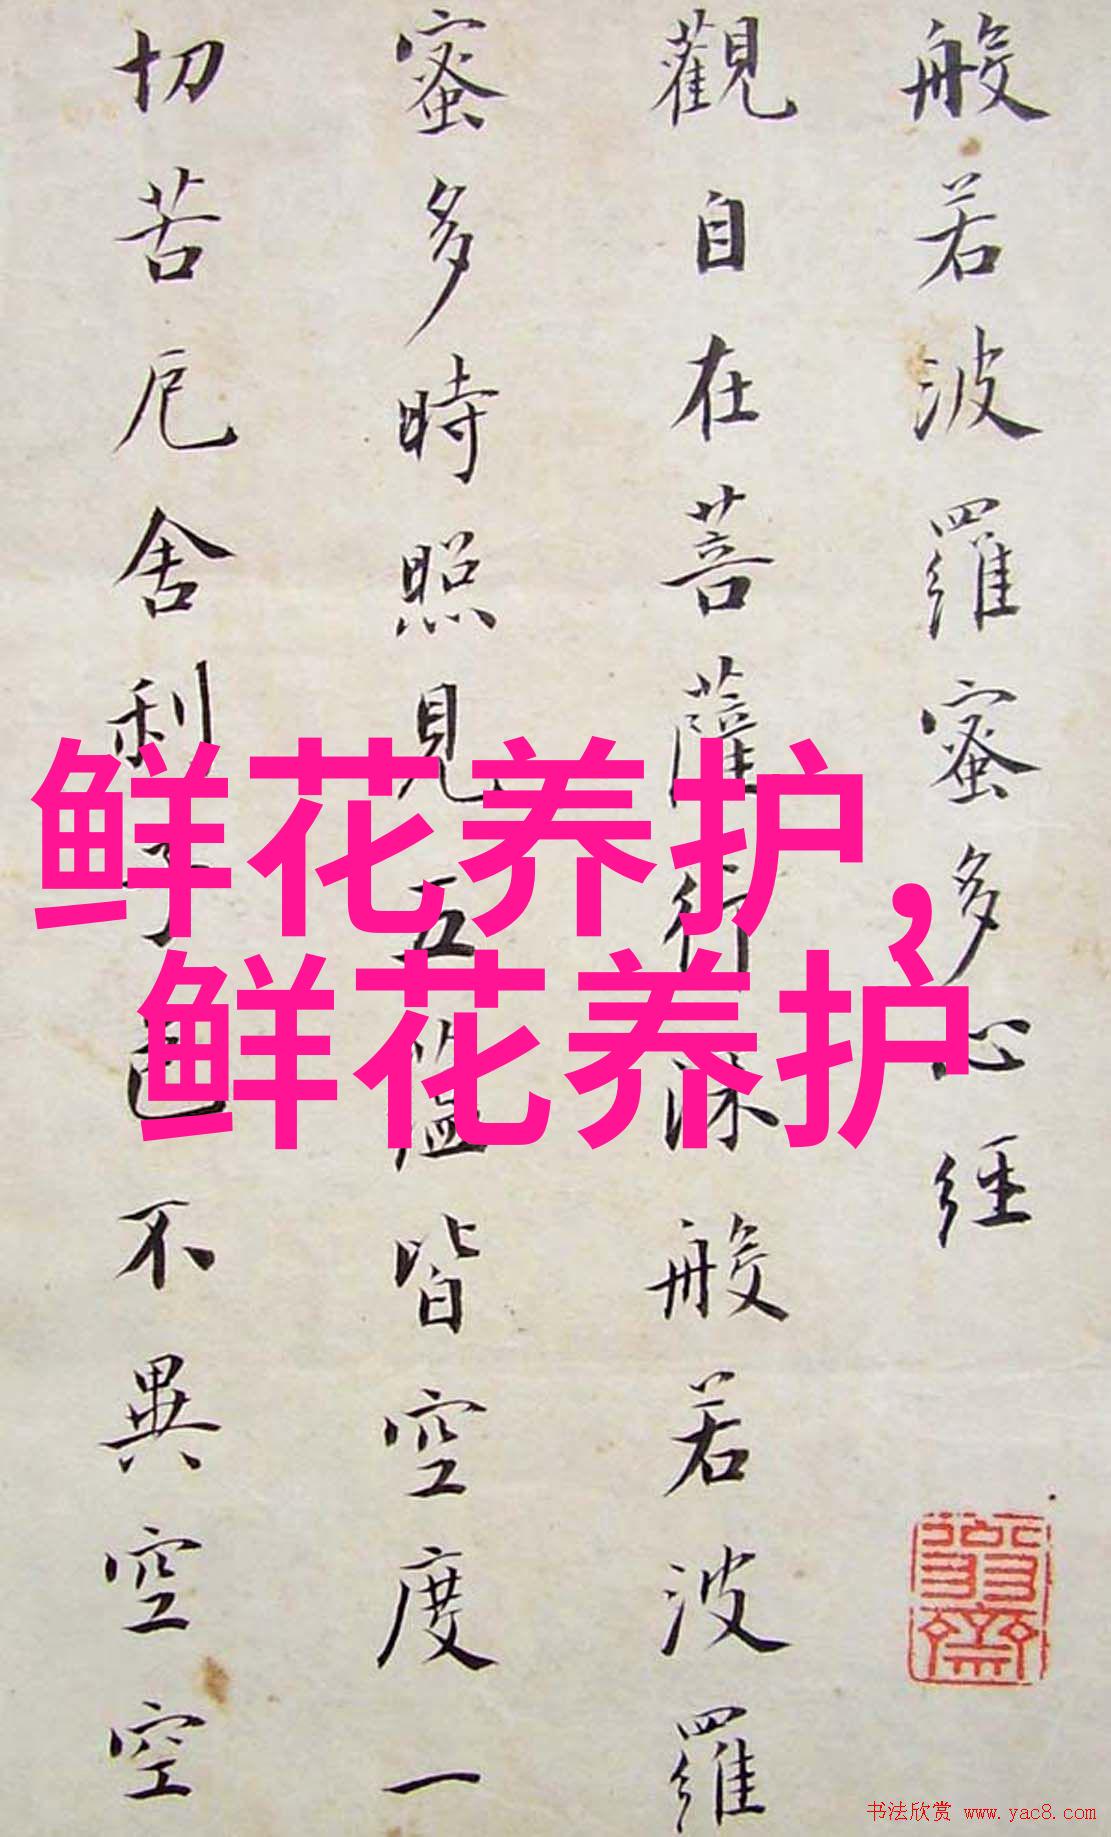 般若波羅蜜多心経
觀自在菩薩行深般若波羅
蜜多時照見五蘊皆空度一
切苦厄舍利子色不異空空
鲜花养护，
鲜花养护
书法欣赏 www.yac8.com